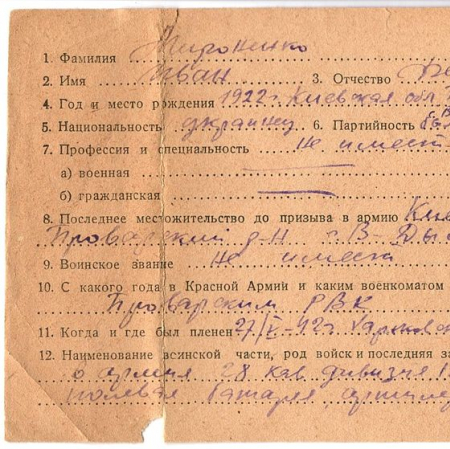 1. Фамилия Мироненко
2. Имя Иван 3. Отчество
4. Год и место рождения 1922 г. Киевская обл.
5. Национальность украинец 6. Партийность
7. Профессия и специальность не имеет
а) военная
б) гражданская
8. Последнее местожительство до призыва в армию Кие
район д-н
9. Воинское звание не имеет
10. С какого года в Красной Армии и каким военкоматом
РВК
11. Когда и где был пленен 27/V-42г. Харьковс
12. Наименование воинской части, род войск и последняя за
армия 28 кав дивизия
полевая батарея артилле